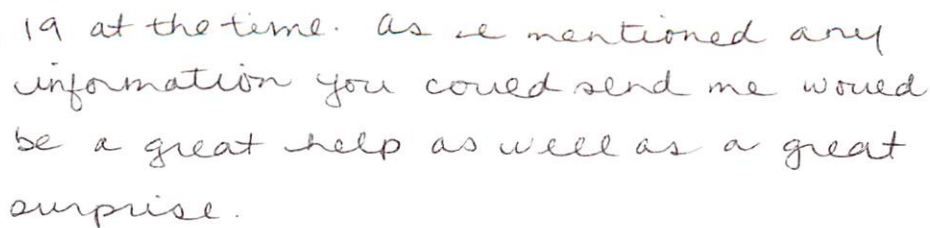 19 at the time. As I mentioned any
information you could send me would
be a great help as well as a great
surprise.